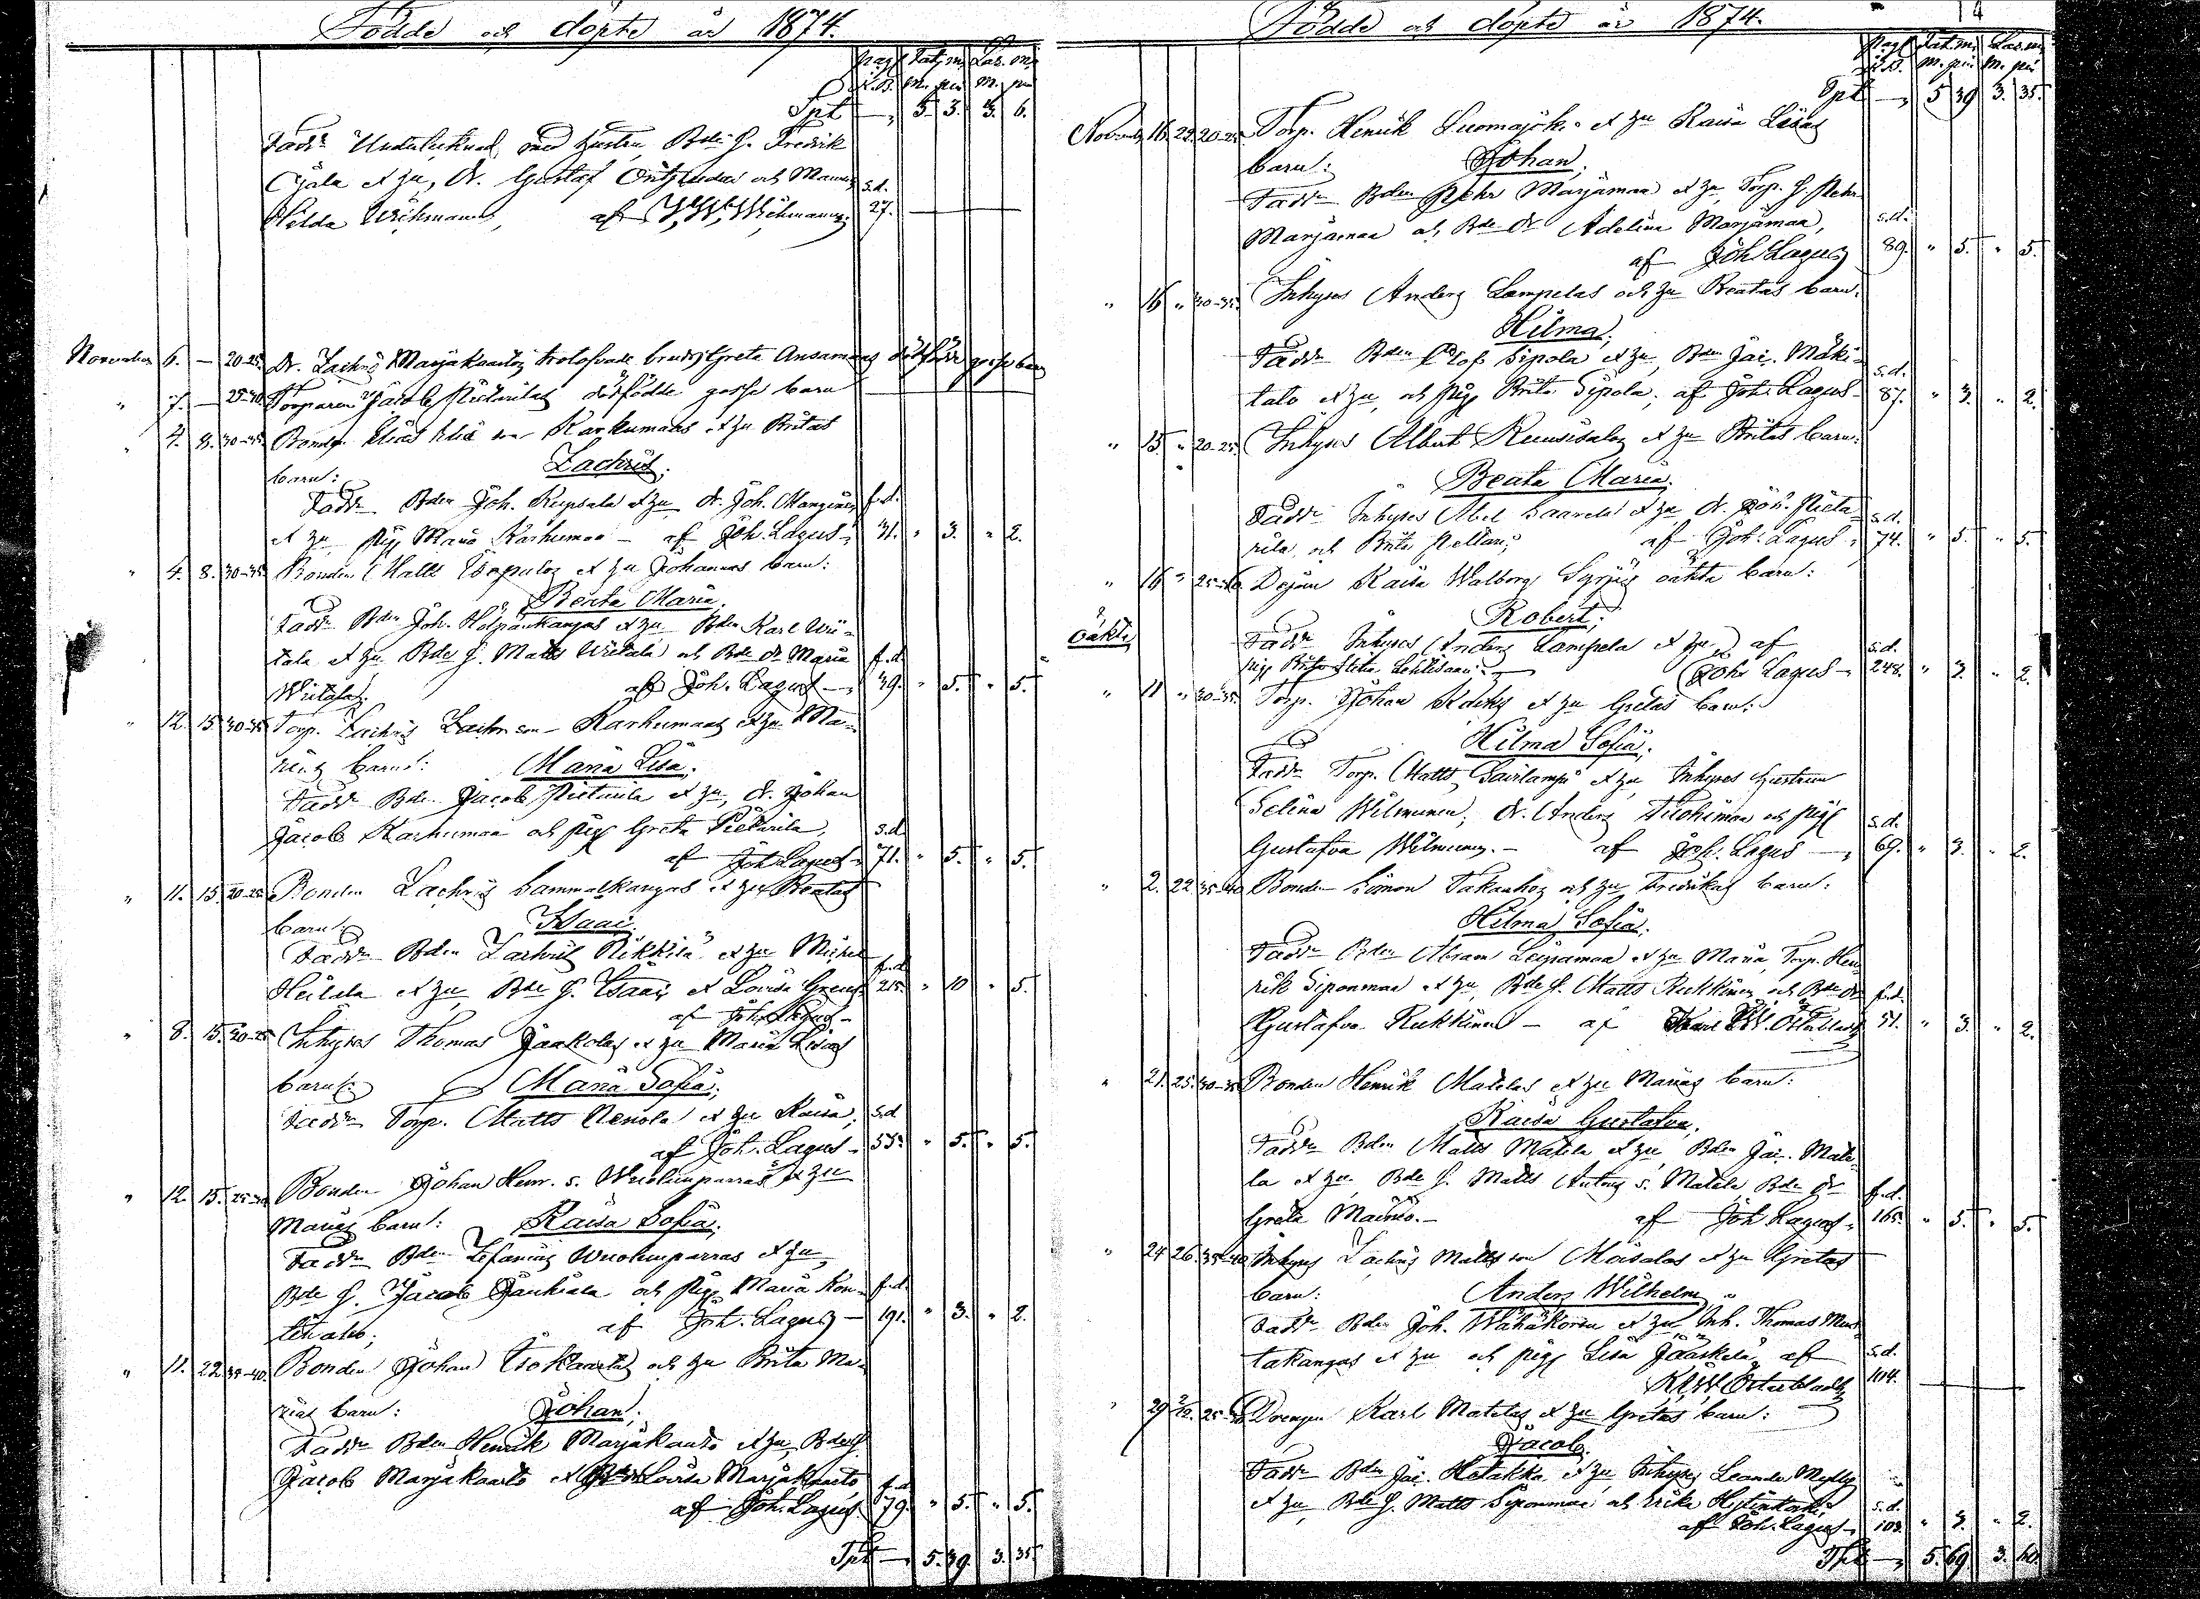 Födde och döpte år 1874.
pag. Fat. m. Las. m.
K.B. m. pi m. pi
Spt 5 3. 3. 6.
Fadd: med hustru, Bde S. Fredrik
Ojala et hu, Dr. Gustaf och
Hilda Wichmann, af Wichmann. s.d. 27.
November 6. — 20-25 Dr. Zachris Marjakaartos trolofvade bruds Greta dödfödde gosse barn
" 7. — 25-30 Torparen Jacob Pietarilas dödfödde gosse barn
" 7. 8. 30-35 Bonden Elias son Karhumaas et hu Britas
barn: Zachris.
Fadd: Bden Joh. et hu, Dr. Joh.
et hu, Pig. Maria Karhumaa — af Joh. Lagus f.d. 31. " 3. " 2.
" 4. 8. 30-35 Bonden Matts et hu Johannas barn:
Beata Maria.
Fadd: Bden Joh. et hu Bden Karl Wii-
tala et hu Bde S. Matts Wiitala och Bde Dr Maria
Wiitala. af Joh. Lagus f.d. 39. " 5. " 5.
" 12. 15. 30-35 Torp. Zachris Zachr. son Karhumaas et hu Ma-
rias barn: Maria Lisa.
Fadd: Bde. Jacob Pietarila et hu, Dr. Johan
Jacob Karhumaa och Pig. Greta Pietarila,
af Joh. Lagus s.d. 71. " 5. " 5.
" 11. 15. 20-25 Bonden Zachris Sammalkangas et hu Beatas
barn: Isaac.
Fadd: Bden Zachris Rikkilä et hu Michel
Heikila et hu, Bde S. Isaac et Lovisa
af Joh. Lagus f.d. 215. " 10 " 5.
" 8. 15. 20-25 Inhyses Thomas Jaakolas et hu Maria Lisas
barn: Maria Sofia.
Fadd: Torp. Matts Nenola et hu Kaisa,
af Joh. Lagus s.d. 55. " 5. " 5.
" 12. 15. 25-30 Bonden Johan Henr. s. Wuolunparras et hu
Marias barn: Kaisa Sofia.
Fadd: Bden Zefanias Wuolunparras et hu,
Bde S. Jacob och Pig. Maria Kon-
tinaho, af Joh. Lagus f.d. 191. " 3. " 2.
" 11. 22. 35-40. Bonden Johan Isokaartas och hu Brita Ma-
rias barn: Johan.
Fadd: Bden Henrik Marjakaarto et hu, Bde S.
Jacob Marjakaarto et Lovisa Marjakaarto
af Joh. Lagus f.d. 79. " 5. " 5.
Spt 5. 39. 3. 35.
Födde och döpte år 1874. 14
pag. Fat. m. Las. m.
K.B. m. pi m. pi
Spt 5 39 3. 35.
November 16. 22. 20-25 Torp. Henrik Suomajok. et hu Kaisa Lisas
barn: Johan.
Fadd: Bden Pehr Marjamaa et hu, Torp. S. Pehr
Marjamaa och Bde Dr Adelina Marjamaa,
af Joh. Lagus s.d. 89. " 5. " 5.
" 16 " 30-35. Inhyses Anders Lampelas och hu Beatas barn:
Hilma.
Fadd: Bden Olof Sipola et hu, Bden Jac. Mäki-
talo et hu, och Pig. Brita Sipola, af Joh. Lagus s.d. 87. " 3. " 2.
" 15. " 20-25. Inhyses Albert Kuusisalos et hu Britas barn:
Beata Maria.
Fadd: Inhyses Abel Saarela et hu, Dr. Joh. Pieta-
rila, och Brita af Joh. Lagus s.d. 74. " 5. " 5.
" 16 " 25-30 Dejan Kaisa Walborg oäkta barn:
Robert.
oäkta Fadd: Inhyses Anders Lampela et hu, af
pig. Brita Joh. Lagus s.d. 248. " 3. " 2.
" 11 " 30-35. Torp. Johan et hu Gretas barn:
Hilma Sofia.
Fadd: Torp. Matts Savilampi et hu, Inhyses hustrun
Selina Wilmunen, Dr. Anders och Pig.
Gustafva Wilmunen — af Joh. Lagus s.d. 69. " 3. " 2.
" 2. 22. 35-40 Bonden Simon Takauhos och hu Fredrikas barn:
Hilma Sofia.
Fadd: Bden Abram et hu Maria, Torp. Hen-
rik Siponmaa et hu, Bde S. Matts Rukkinen och Bde Dr
Gustafva Rukkinen — af Karl W. Österbladh f.d. 51. " 3. " 2.
" 21. 25. 30-35 Bonden Henrik Matelas et hu Marias barn:
Kaisa Gustafva.
Fadd: Bden Matts Matela et hu, Bden Jac. Mate-
la et hu, Bde S. Matts s. Matela Bde Dr
Greta — af Joh. Lagus f.d. 165. " 5. " 5.
" 24 26. 35-40 Inhyses Zachris Matts son Moisalas et hu Gretas
barn: Anders Wilhelm.
Fadd: Bden Joh. et hu Inh. Thomas Mus-
takangas et hu och pig. Lisa Jääskelä, af
K. W. Österbladh s.d. 104.
" 29 2/12. 25-30 Drengen Karl Matelas et hu Gretas barn:
Jacob.
Fadd: Bden Jac. Hetakka et hu Inhyses Leander Mylly
et hu, Bde S. Matts Siponmaa, och Erika
af Joh. Lagus s.d. 103. " 3. " 2.
Spt 5. 69. 3. 60.